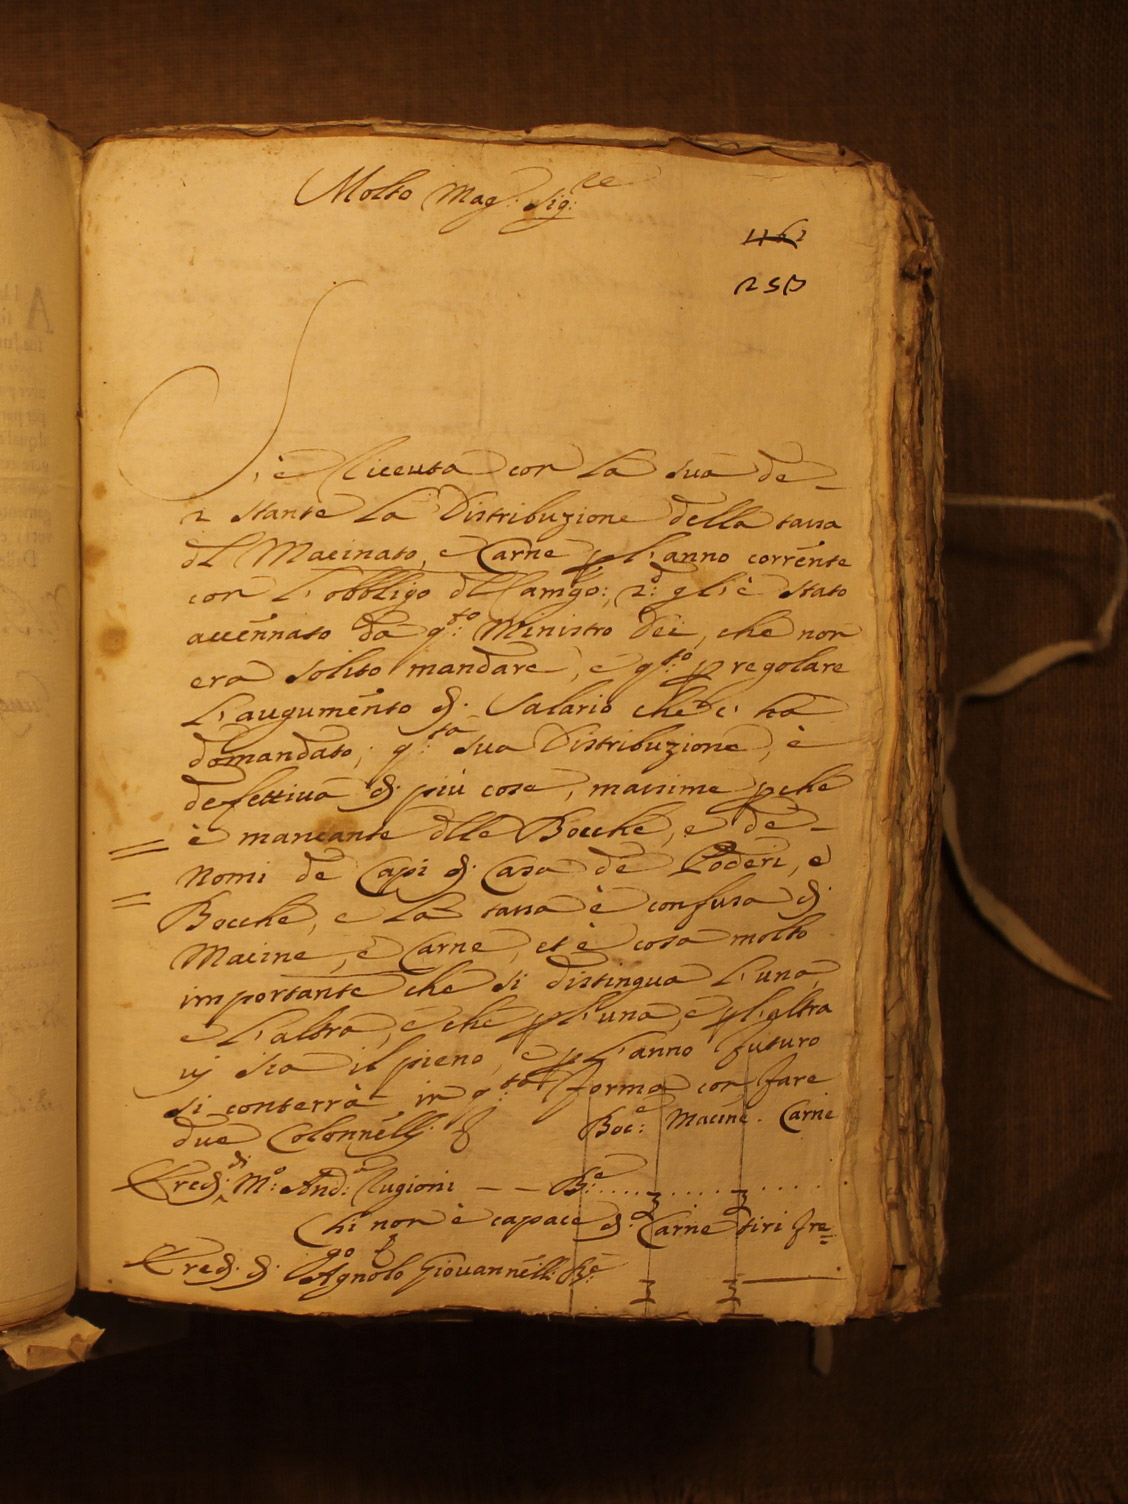 Molto Mag: Sig:re
1161
250
Si è riceuta con la sua de
2 stante la Distribuzione della tassa
dl Macinato, e Carne p l'anno corrente
con l'obbligo dl Camgo:, gl'è stato
accennato da q:to Ministro dei, che non
era solito mandare, e q:to p regolare
l'augumento di Salario che c'ha
domandato; q:ta sua Distribuzione, è
defettiua di più cose, massime pche
è mancante dlle Bocche, e de
Nomi de Capi di Casa de Poderi, e
Bocche, e la tassa è confusa di
Macine, e Carne, et è cosa molto
importante che si distingua l'una,
e l'altra, e che p l'una, e p l'altra
uj sia il pieno, e p l'anno futuro
si conterrà in q:ta forma con fare
due Colonnelli
Boc:e Macine. Carne
Ered: di M:o And:a Rugioni — — B:e
Chi non è capace di Carne tiri fre
Ered: di Agnolo Giouannelli B:e